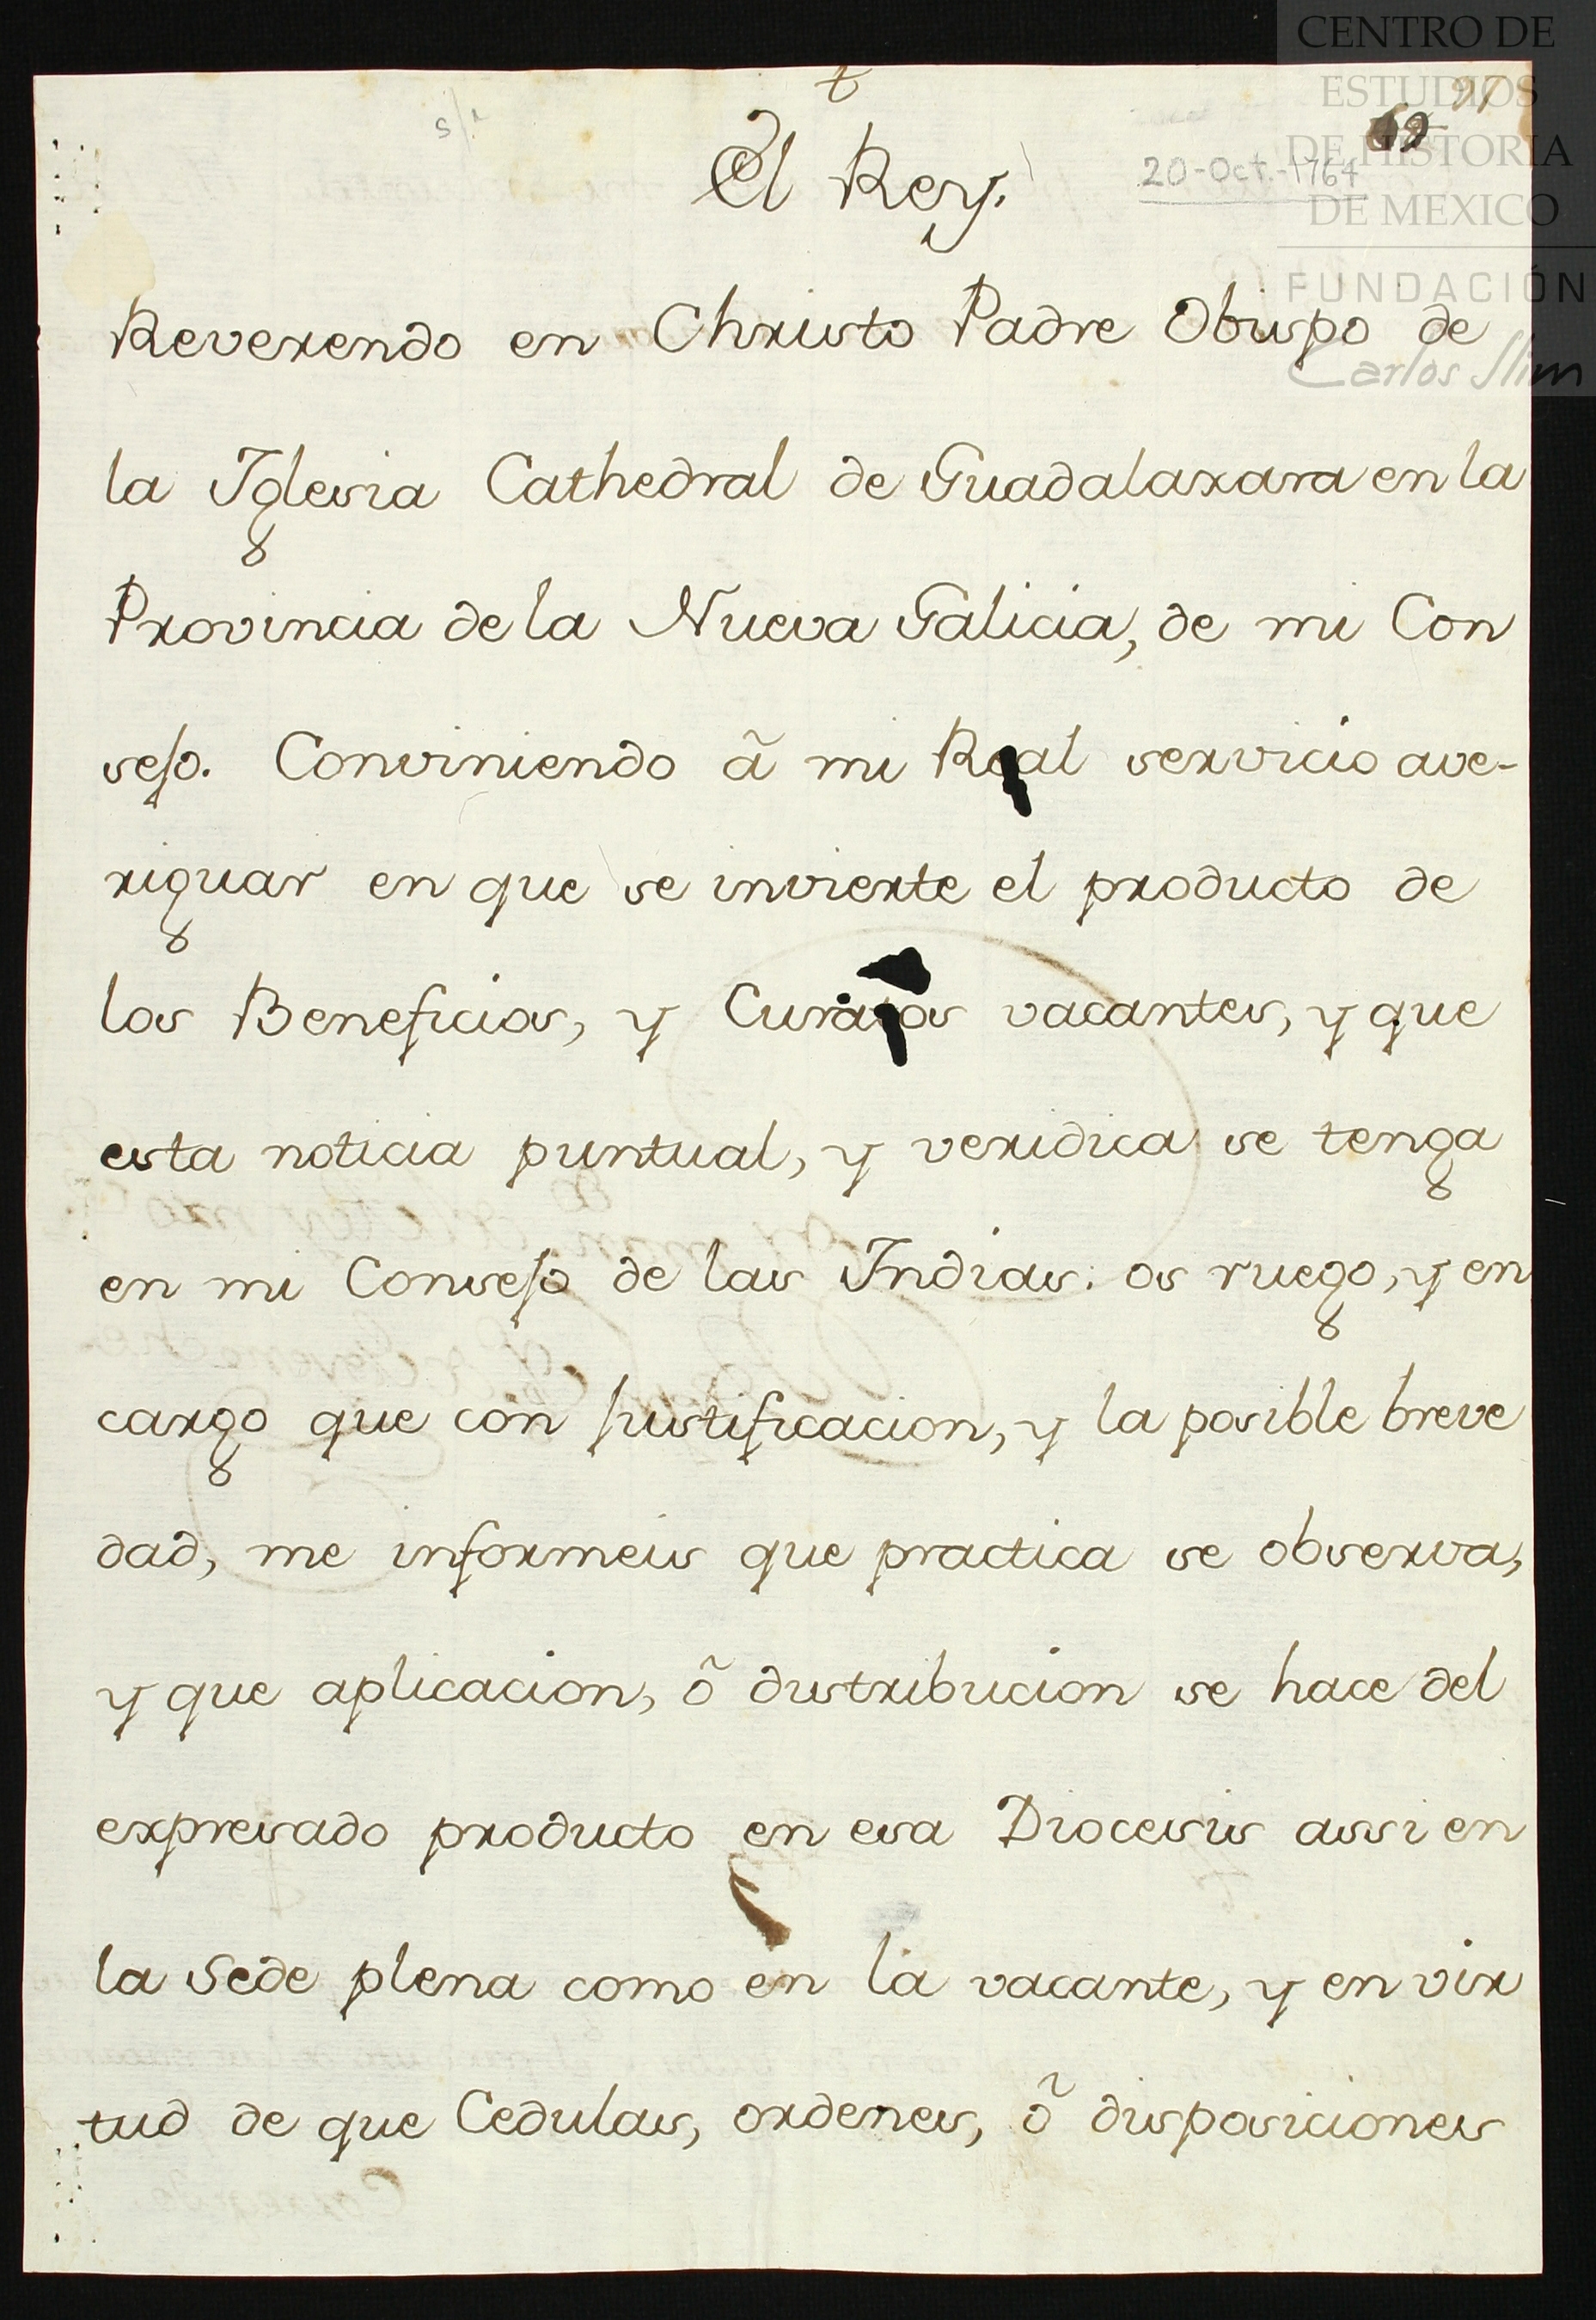 t
El Rey.
s/r
20-Oct.-1764
Reverendo en Christo Padre Obispo de
la Yglesia Cathedral de Guadalaxara en la
Provincia de la Nueva Galicia, de mi Con
sejo. Conviniendo â mi Real servicio ave-
riguar en que se invierte el producto de
los Beneficios, y Curatos vacantes, y que
esta noticia puntual, y veridica se tenga
en mi Consejo de las Indias: os ruego, y en
cargo que con justificacion, y la posible breve
dad, me informeis que practica se observa,
y que aplicacion, ô distribucion se hace del
expresado producto en esa Diocesis assi en
la Sede plena como en la vacante, y en vir
tud de que Cedulas, ordenes, ô disposiciones
CENTRO DE
ESTUDIOS
DE HISTORIA
DE MEXICO
FUNDACIÓN
Carlos Slim